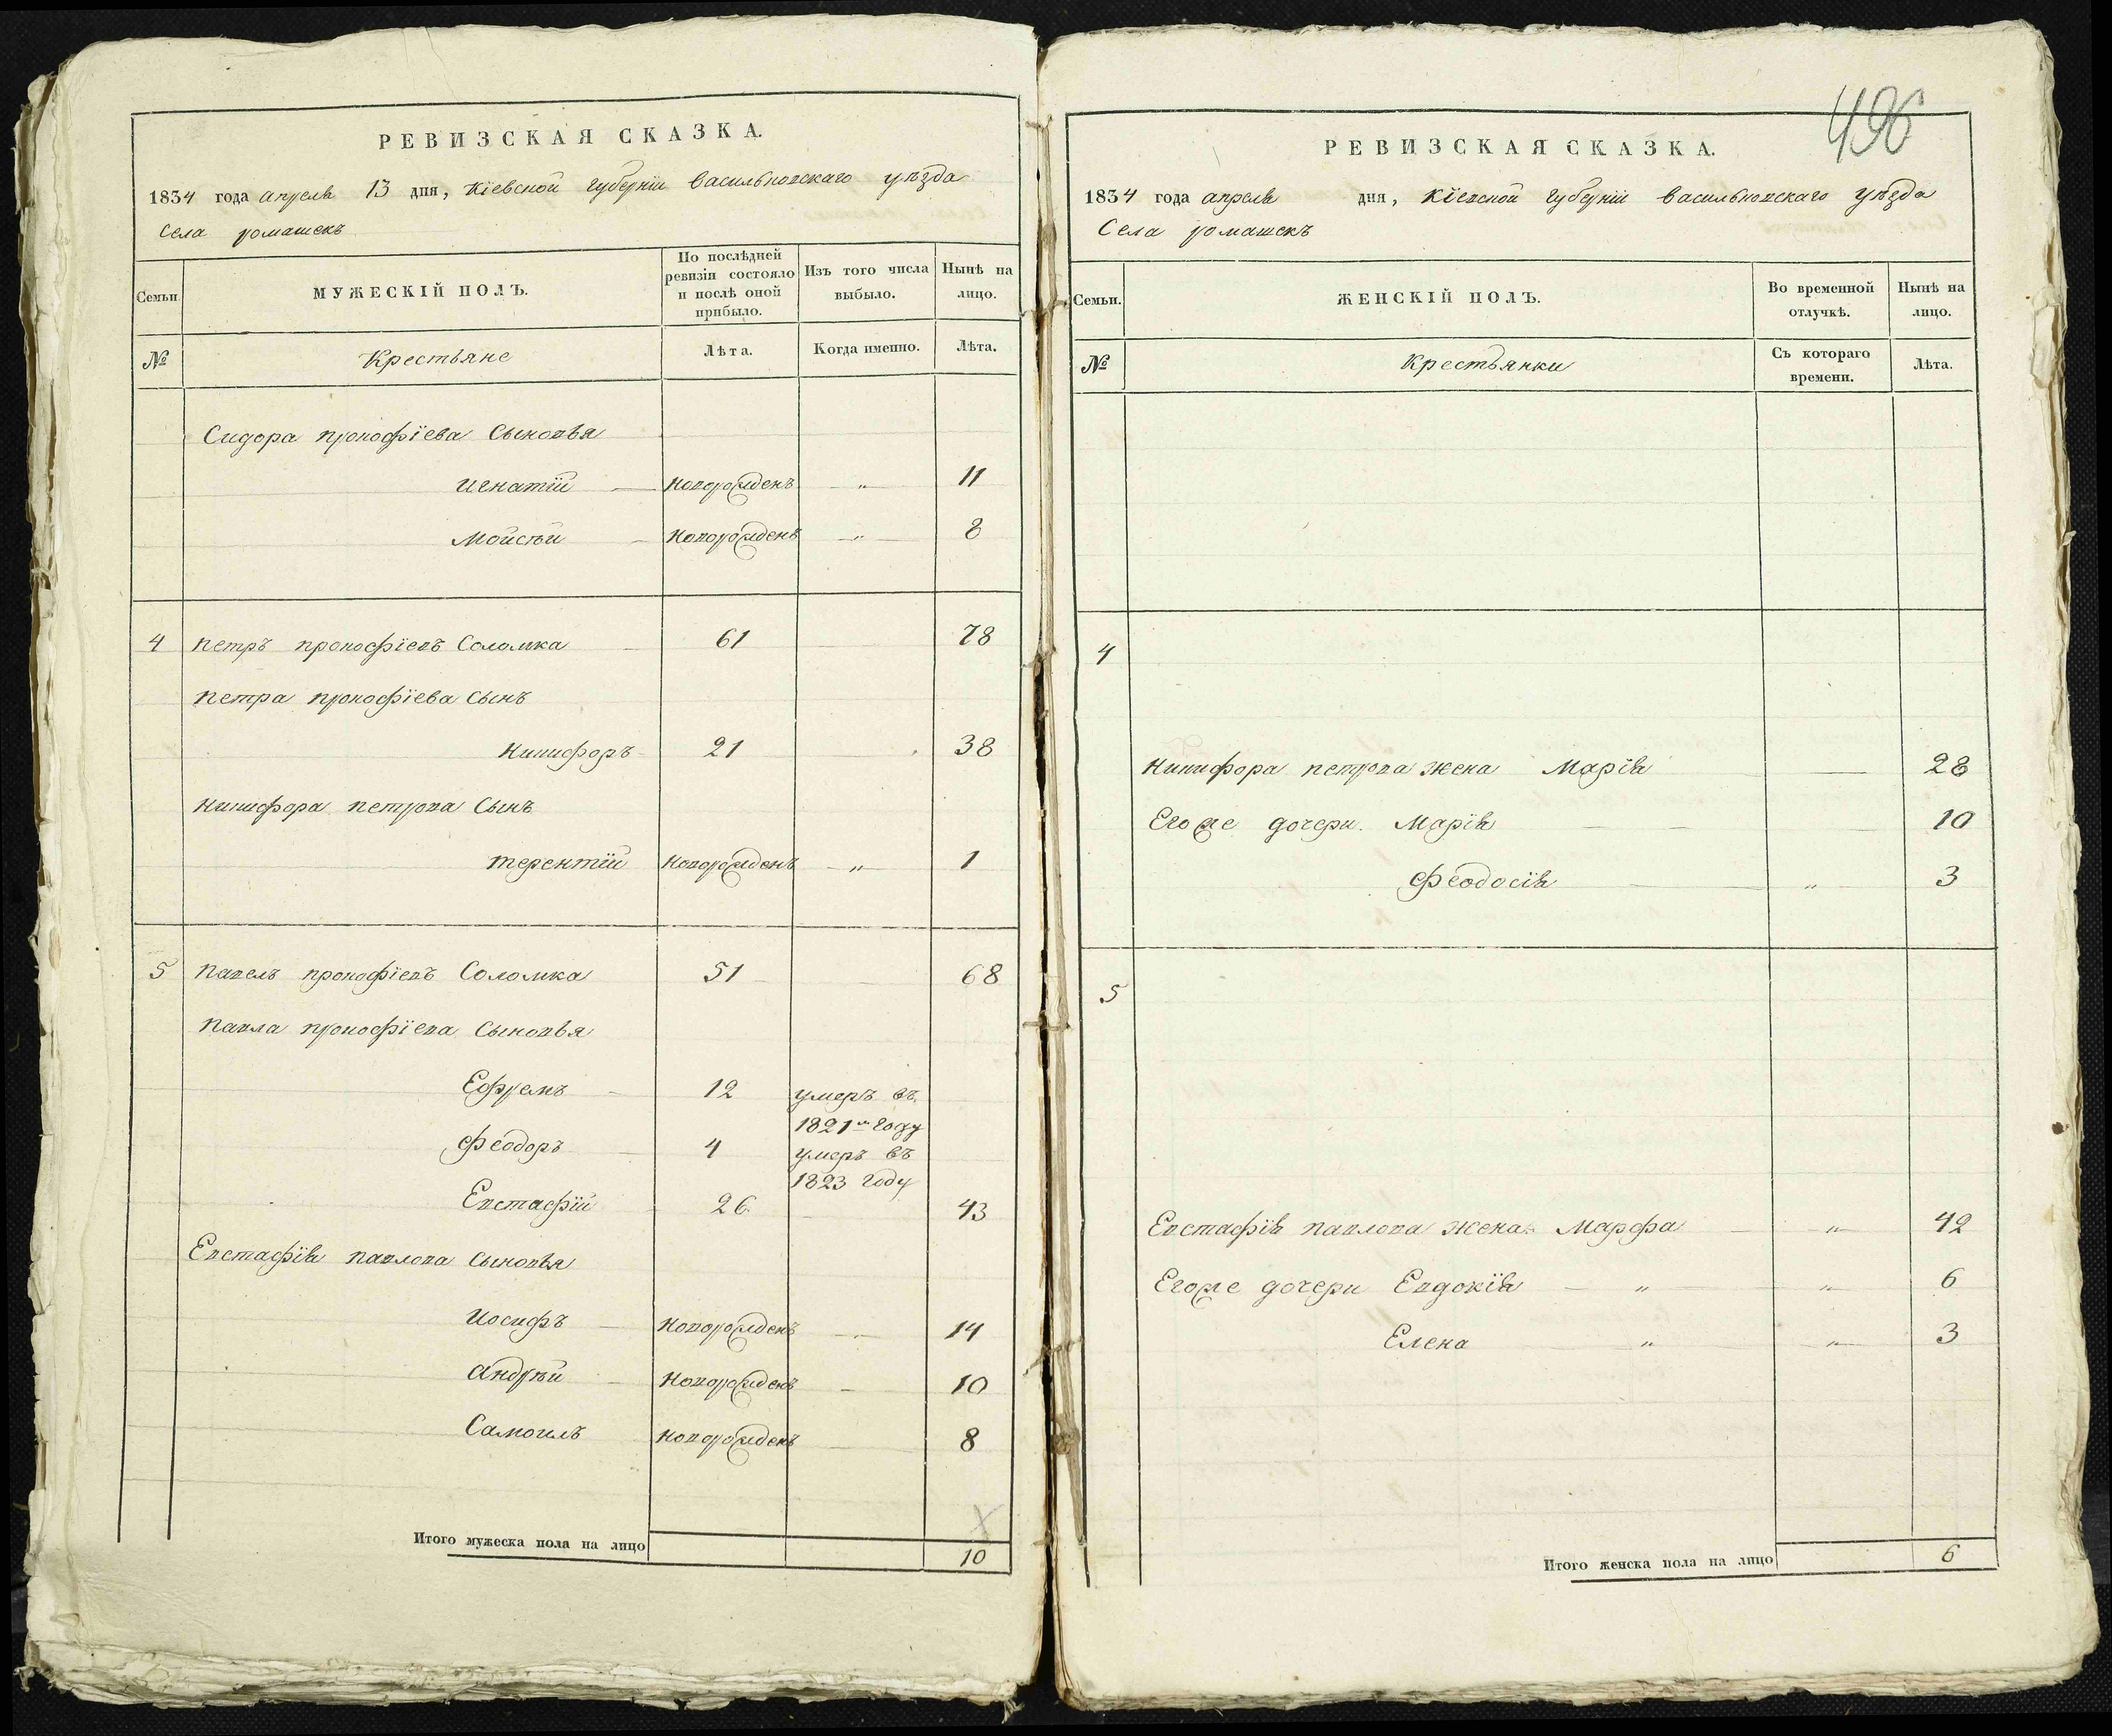 РЕВИЗСКАЯ СКАЗКА.
1834 года апреля 13 дня, Кіевской губерніи Васильковскаго уѣзда
Села Ромашекъ
Семьи.
МУЖЕСКІЙ ПОЛЪ.
По послѣдней ревизіи состояло и послѣ оной прибыло.
Изъ того числа выбыло.
Нынѣ на лицо.
№
Крестьяне
Лѣта.
Когда именно.
Лѣта.
Сидора прокофіева Сыновья
Игнатій новорожденъ " 11
Мойсѣй новорожденъ " 8
4 Петръ прокофіевъ Соломка 61 78
Петра прокофіева Сынъ
Никифоръ 21 38
Никифора петрова Сынъ
Терентій новорожденъ " 1
5 Павелъ прокофіевъ Соломка 51 68
Павла прокофіева Сыновья
Ефремъ 12 умеръ въ 1821м году
Феодоръ 4 умеръ въ 1823 году
Евстафій 26 43
Евстафія павлова сыновья
Иосифъ новорожденъ 14
Андрѣй новорожденъ 10
Самоилъ новорожденъ 8
Итого мужеска пола на лицо 10
496
РЕВИЗСКАЯ СКАЗКА.
1834 года апреля дня, Кіевской губерніи Васильковскаго уѣзда
Села Ромашекъ
Семьи.
ЖЕНСКІЙ ПОЛЪ.
Во временной отлучкѣ.
Нынѣ на лицо.
№
Крестьянки
Съ котораго времени.
Лѣта.
4
Никифора петрова жена Марія 28
Егоже дочери Марія 10
Феодосія " 3
5
Евстафія павлова жена Марфа " 42
Егоже дочери Евдокія " " 6
Елена " " 3
Итого женска пола на лицо 6